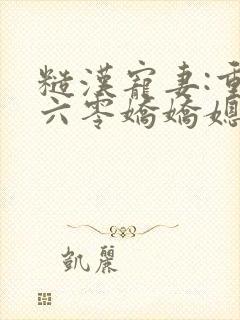 糙漢寵妻:重
六零嬌嬌媳
凱麗